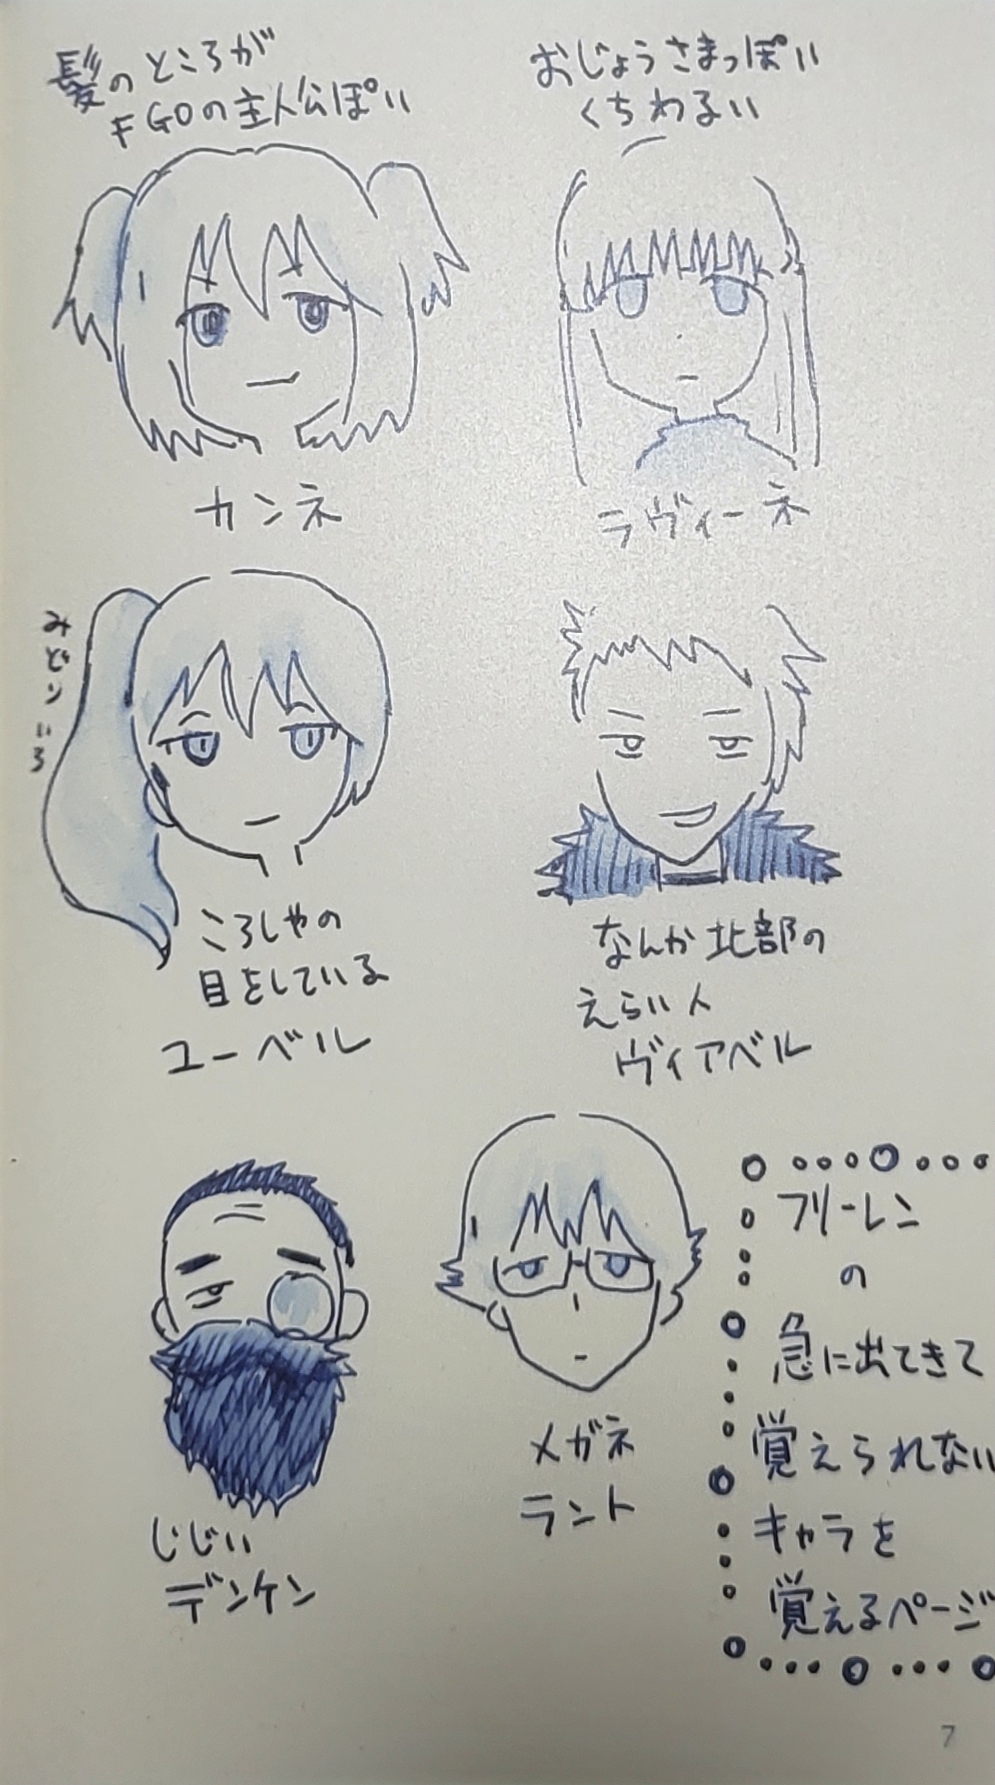 髪のところが
FGOの主人公ぽい
カンネ
おじょうさまっぽい
くちわるい
ラヴィーネ
みどりいろ
ころしやの
目をしている
ユーベル
なんか北部の
えらい人
ヴィアベル
じじい
デンケン
メガネ
ラント
フリーレン
の
急に出てきて
覚えられない
キャラを
覚えるページ
7